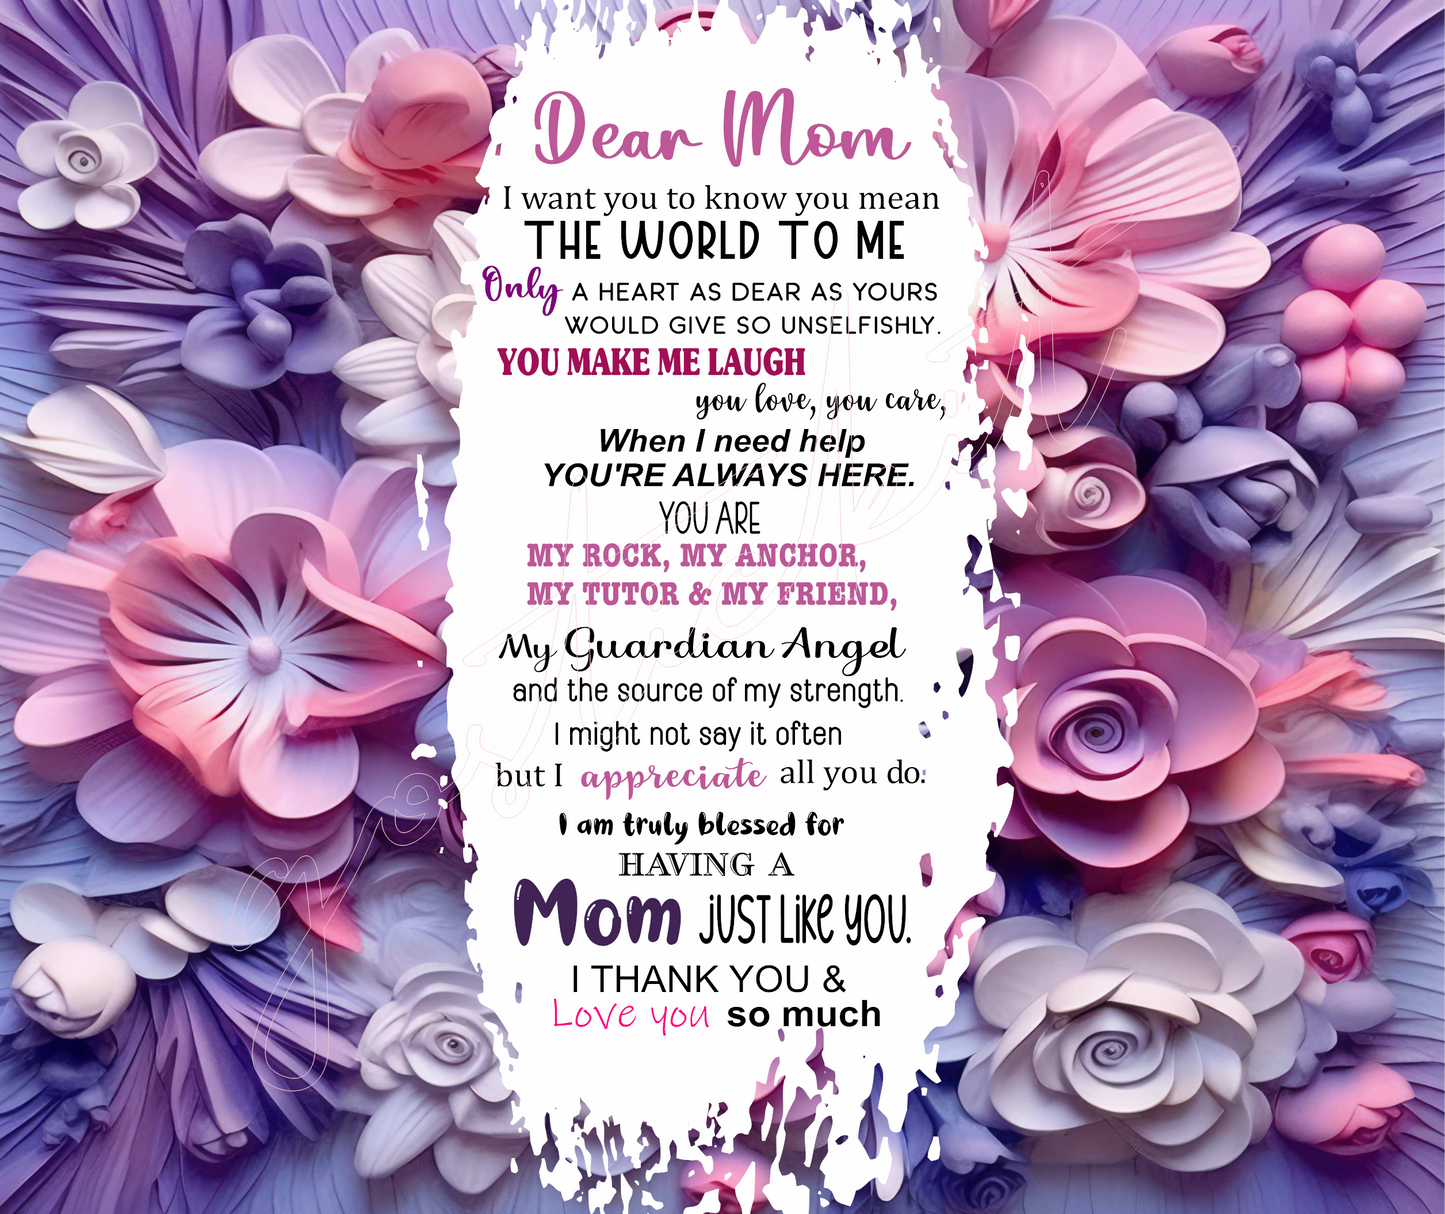 Dear Mom
I want you to know you mean
THE WORLD TO ME
Only A HEART AS DEAR AS YOURS
WOULD GIVE SO UNSELFISHLY.
YOU MAKE ME LAUGH
you love, you care,
When I need help
YOU'RE ALWAYS HERE.
YOU ARE
MY ROCK, MY ANCHOR,
MY TUTOR & MY FRIEND,
My Guardian Angel
and the source of my strength.
I might not say it often
but I appreciate all you do.
I am truly blessed for
HAVING A
Mom JUST LIKE YOU.
I THANK YOU &
Love you so much